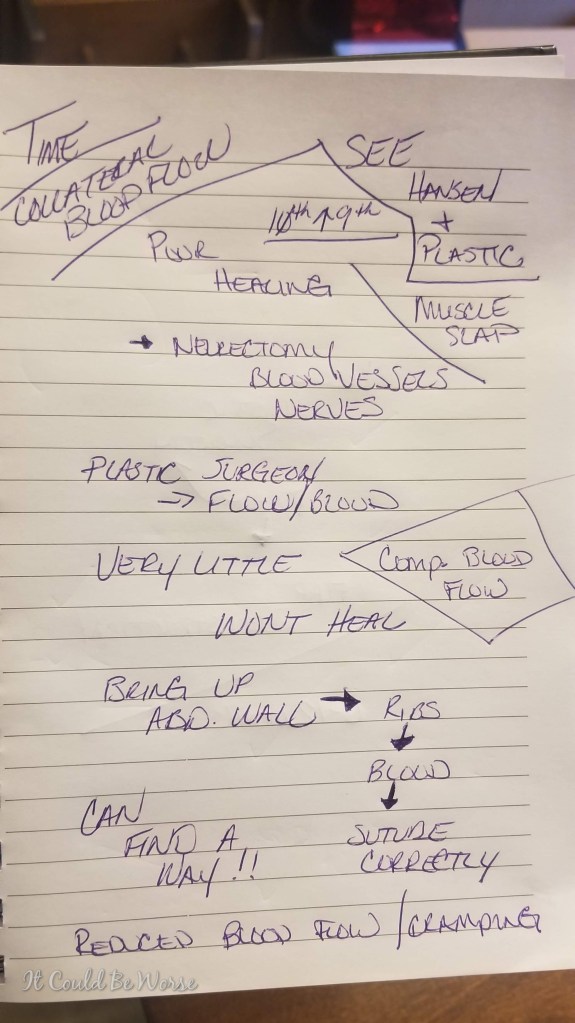 TIME
COLLATERAL
BLOOD FLOW
SEE
HANSEN
+
PLASTIC
10th ↑ 9th
POOR
HEALING
MUSCLE
SLAP
→ NEURECTOMY
BLOOD VESSELS
NERVES
PLASTIC SURGEON/
→ FLOW/BLOOD
VERY LITTLE
Comp. BLOOD
FLOW
WONT HEAL
BRING UP
ABD. WALL → RIBS
↓
BLOOD
↓
CAN
FIND A
WAY!!
SUTURE
CORRECTLY
REDUCED BLOOD FLOW / CRAMPING
It Could Be Worse